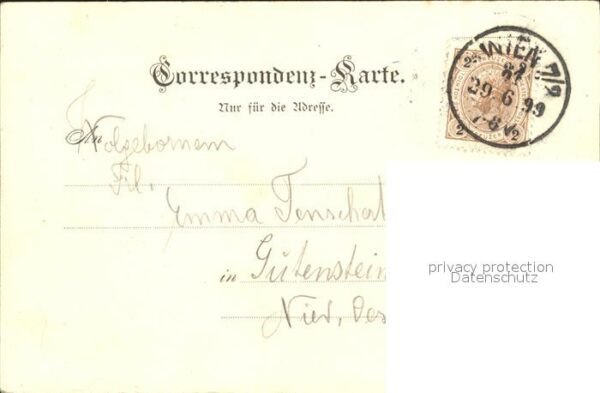 Correspondenz-Karte.
Nur für die Adresse.
An
Frl.
Emma Tenschat
in Gutenstein
Nied. Oes
WIEN 7/2
29 6 99
privacy protection
Datenschutz